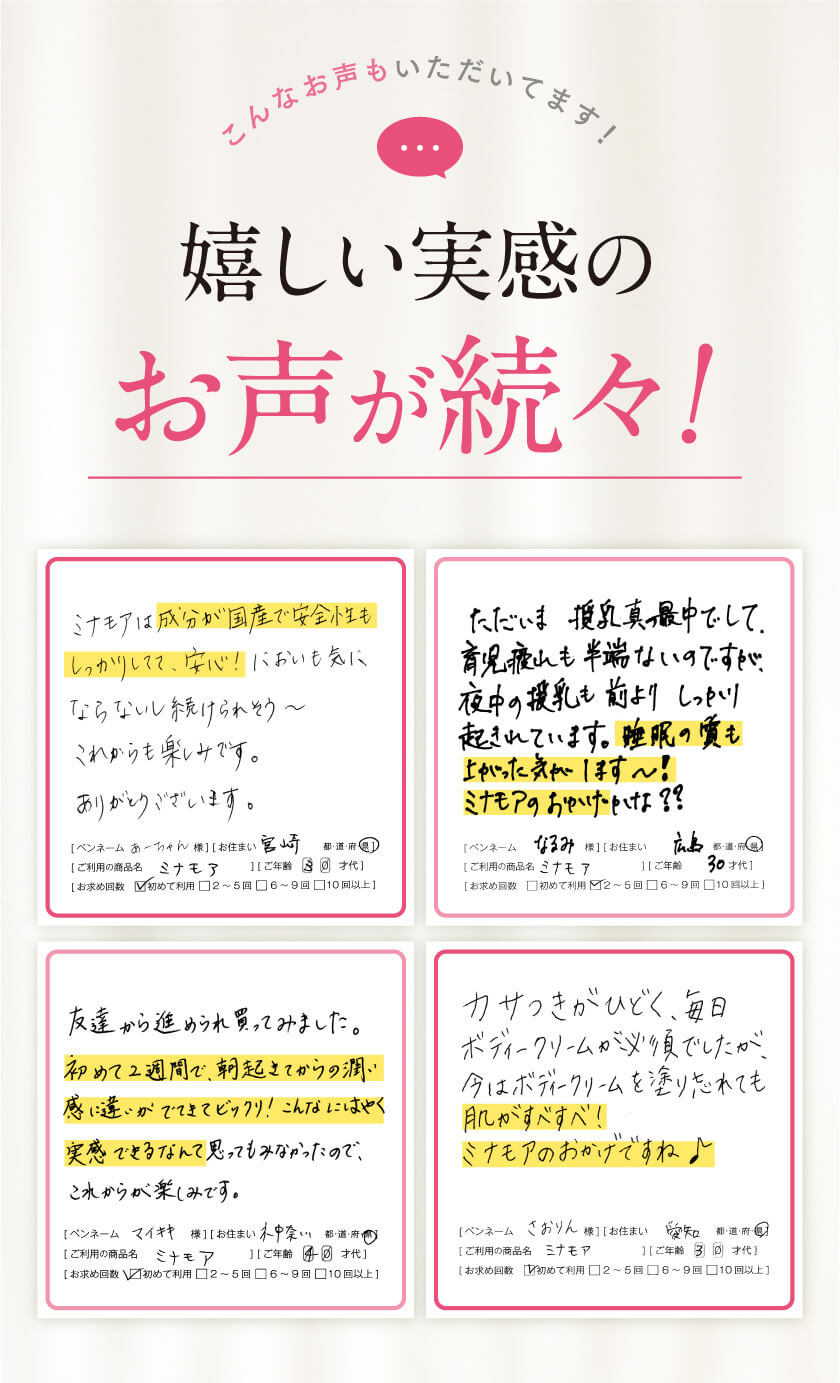 こんなお声もいただいてます!
嬉しい実感の
お声が続々!
ミナモアは成分が国産で安全性も
しっかりしてて、安心!においも気に
ならないし続けられそう〜
これからも楽しみです。
ありがとうございます。
[ペンネーム あーちゃん 様] [お住まい 宮崎 都・道・府・県]
[ご利用の商品名 ミナモア ] [ご年齢 30 才代]
[お求め回数 ☑初めて利用 □2〜5回 □6〜9回 □10回以上]
ただいま 授乳真っ最中でして、
育児疲れも半端ないのですが、
夜中の授乳も前より しっかり
起きれています。睡眠の質も
上がった気がします〜!
ミナモアのおかげかな??
[ペンネーム なるみ 様] [お住まい 広島 都・道・府・県]
[ご利用の商品名 ミナモア ] [ご年齢 30 才代]
[お求め回数 □初めて利用 ☑2〜5回 □6〜9回 □10回以上]
友達から進められ買ってみました。
初めて2週間で、朝起きてからの潤い
感に違いがでてきてビックリ!こんなにはやく
実感できるなんて思ってもみなかったので、
これからが楽しみです。
[ペンネーム マイキキ 様] [お住まい 神奈川 都・道・府・県]
[ご利用の商品名 ミナモア ] [ご年齢 40 才代]
[お求め回数 ☑初めて利用 □2〜5回 □6〜9回 □10回以上]
カサつきがひどく、毎日
ボディークリームが必須でしたが、
今はボディークリームを塗り忘れても
肌がすべすべ!
ミナモアのおかげですね♪
[ペンネーム さおりん 様] [お住まい 愛知 都・道・府・県]
[ご利用の商品名 ミナモア ] [ご年齢 30 才代]
[お求め回数 ☑初めて利用 □2〜5回 □6〜9回 □10回以上]